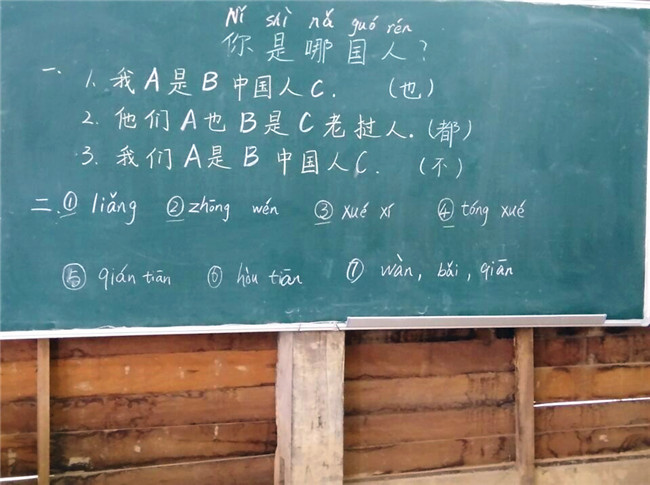 Nǐ shì nǎ guó rén
你是哪国人?
一. 1. 我A是B中国人C. (也)
2. 他们A也B是C老挝人. (都)
3. 我们A是B中国人C. (不)
二. ① liǎng ② zhōng wén ③ xué xí ④ tóng xué
⑤ qián tiān ⑥ hòu tiān ⑦ wàn, bǎi, qiān